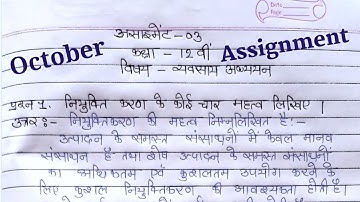 Date
Page
असाइमेंट -03
October
कक्षा - 12 वीं
Assignment
विषय - व्यवसाय अध्ययन
प्रश्न 1. नियुक्ति करण के कोई चार महत्व लिखिए।
उत्तर :- नियुक्तिकरण का महत्व निम्नलिखित है :-
उत्पादन के समस्त संसाधनों में केवल मानव
संसाधन है तथा शेष उत्पादन के समस्त संसाधनों
का अधिकतम एवं कुशलतम उपयोग करने के
लिए कुशल नियुक्तिकरण की आवश्यकता होती है।